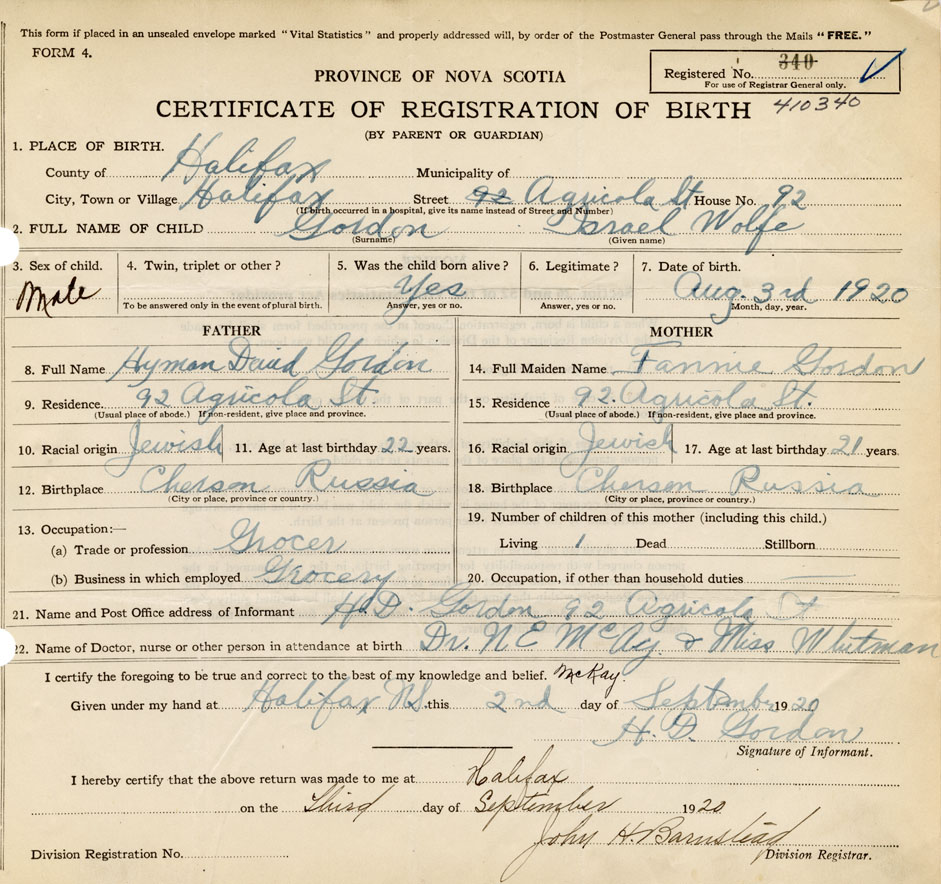 This form if placed in an unsealed envelope marked "Vital Statistics" and properly addressed will, by order of the Postmaster General pass through the Mails "FREE."
FORM 4.
Registered No. 340
For use of Registrar General only.
PROVINCE OF NOVA SCOTIA
CERTIFICATE OF REGISTRATION OF BIRTH 410340
(BY PARENT OR GUARDIAN)
1. PLACE OF BIRTH.
County of Halifax Municipality of
City, Town or Village Halifax Street 92 Agricola St House No. 92
(If birth occurred in a hospital, give its name instead of Street and Number)
2. FULL NAME OF CHILD Gordon Israel Wolfe
(Surname) (Given name)
3. Sex of child. 4. Twin, triplet or other? 5. Was the child born alive? 6. Legitimate? 7. Date of birth.
Male Yes Aug. 3rd 1920
To be answered only in the event of plural birth. Answer, yes or no. Answer, yes or no. Month, day, year.
FATHER MOTHER
8. Full Name Hyman David Gordon 14. Full Maiden Name Fannie Gordon
9. Residence 92 Agricola St. 15. Residence 92 Agricola St.
(Usual place of abode.) If non-resident, give place and province. (Usual place of abode.) If non-resident, give place and province.
10. Racial origin Jewish 11. Age at last birthday 22 years. 16. Racial origin Jewish 17. Age at last birthday 21 years.
12. Birthplace Cherson Russia 18. Birthplace Cherson Russia
(City or place, province or country.) (City or place, province or country.)
13. Occupation:— 19. Number of children of this mother (including this child.)
(a) Trade or profession Grocer Living 1 Dead Stillborn
(b) Business in which employed Grocery 20. Occupation, if other than household duties
21. Name and Post Office address of Informant H.D. Gordon 92 Agricola St
22. Name of Doctor, nurse or other person in attendance at birth Dr. N E McAy & Miss Whitman
I certify the foregoing to be true and correct to the best of my knowledge and belief. McKay
Given under my hand at Halifax N.S. this 2nd day of September 1920
H. D. Gordon
Signature of Informant.
I hereby certify that the above return was made to me at Halifax
on the Third day of September 1920
John H. Barnstead
Division Registration No. Division Registrar.